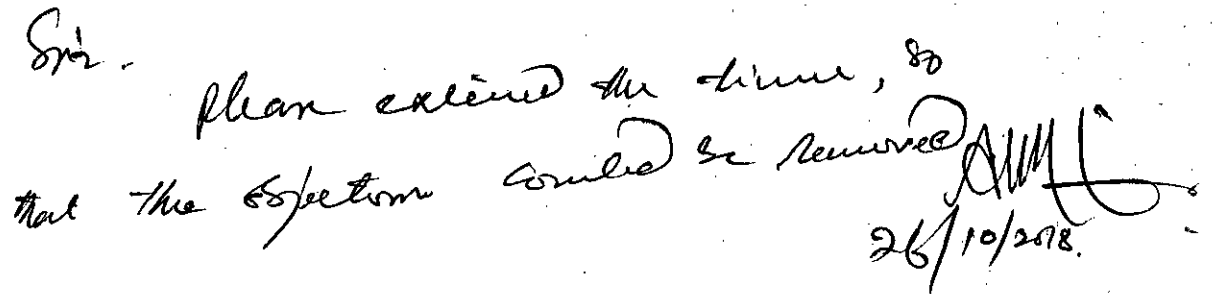 Sir.
Please extend the time, so
that the objection could be removed
26/10/2018.